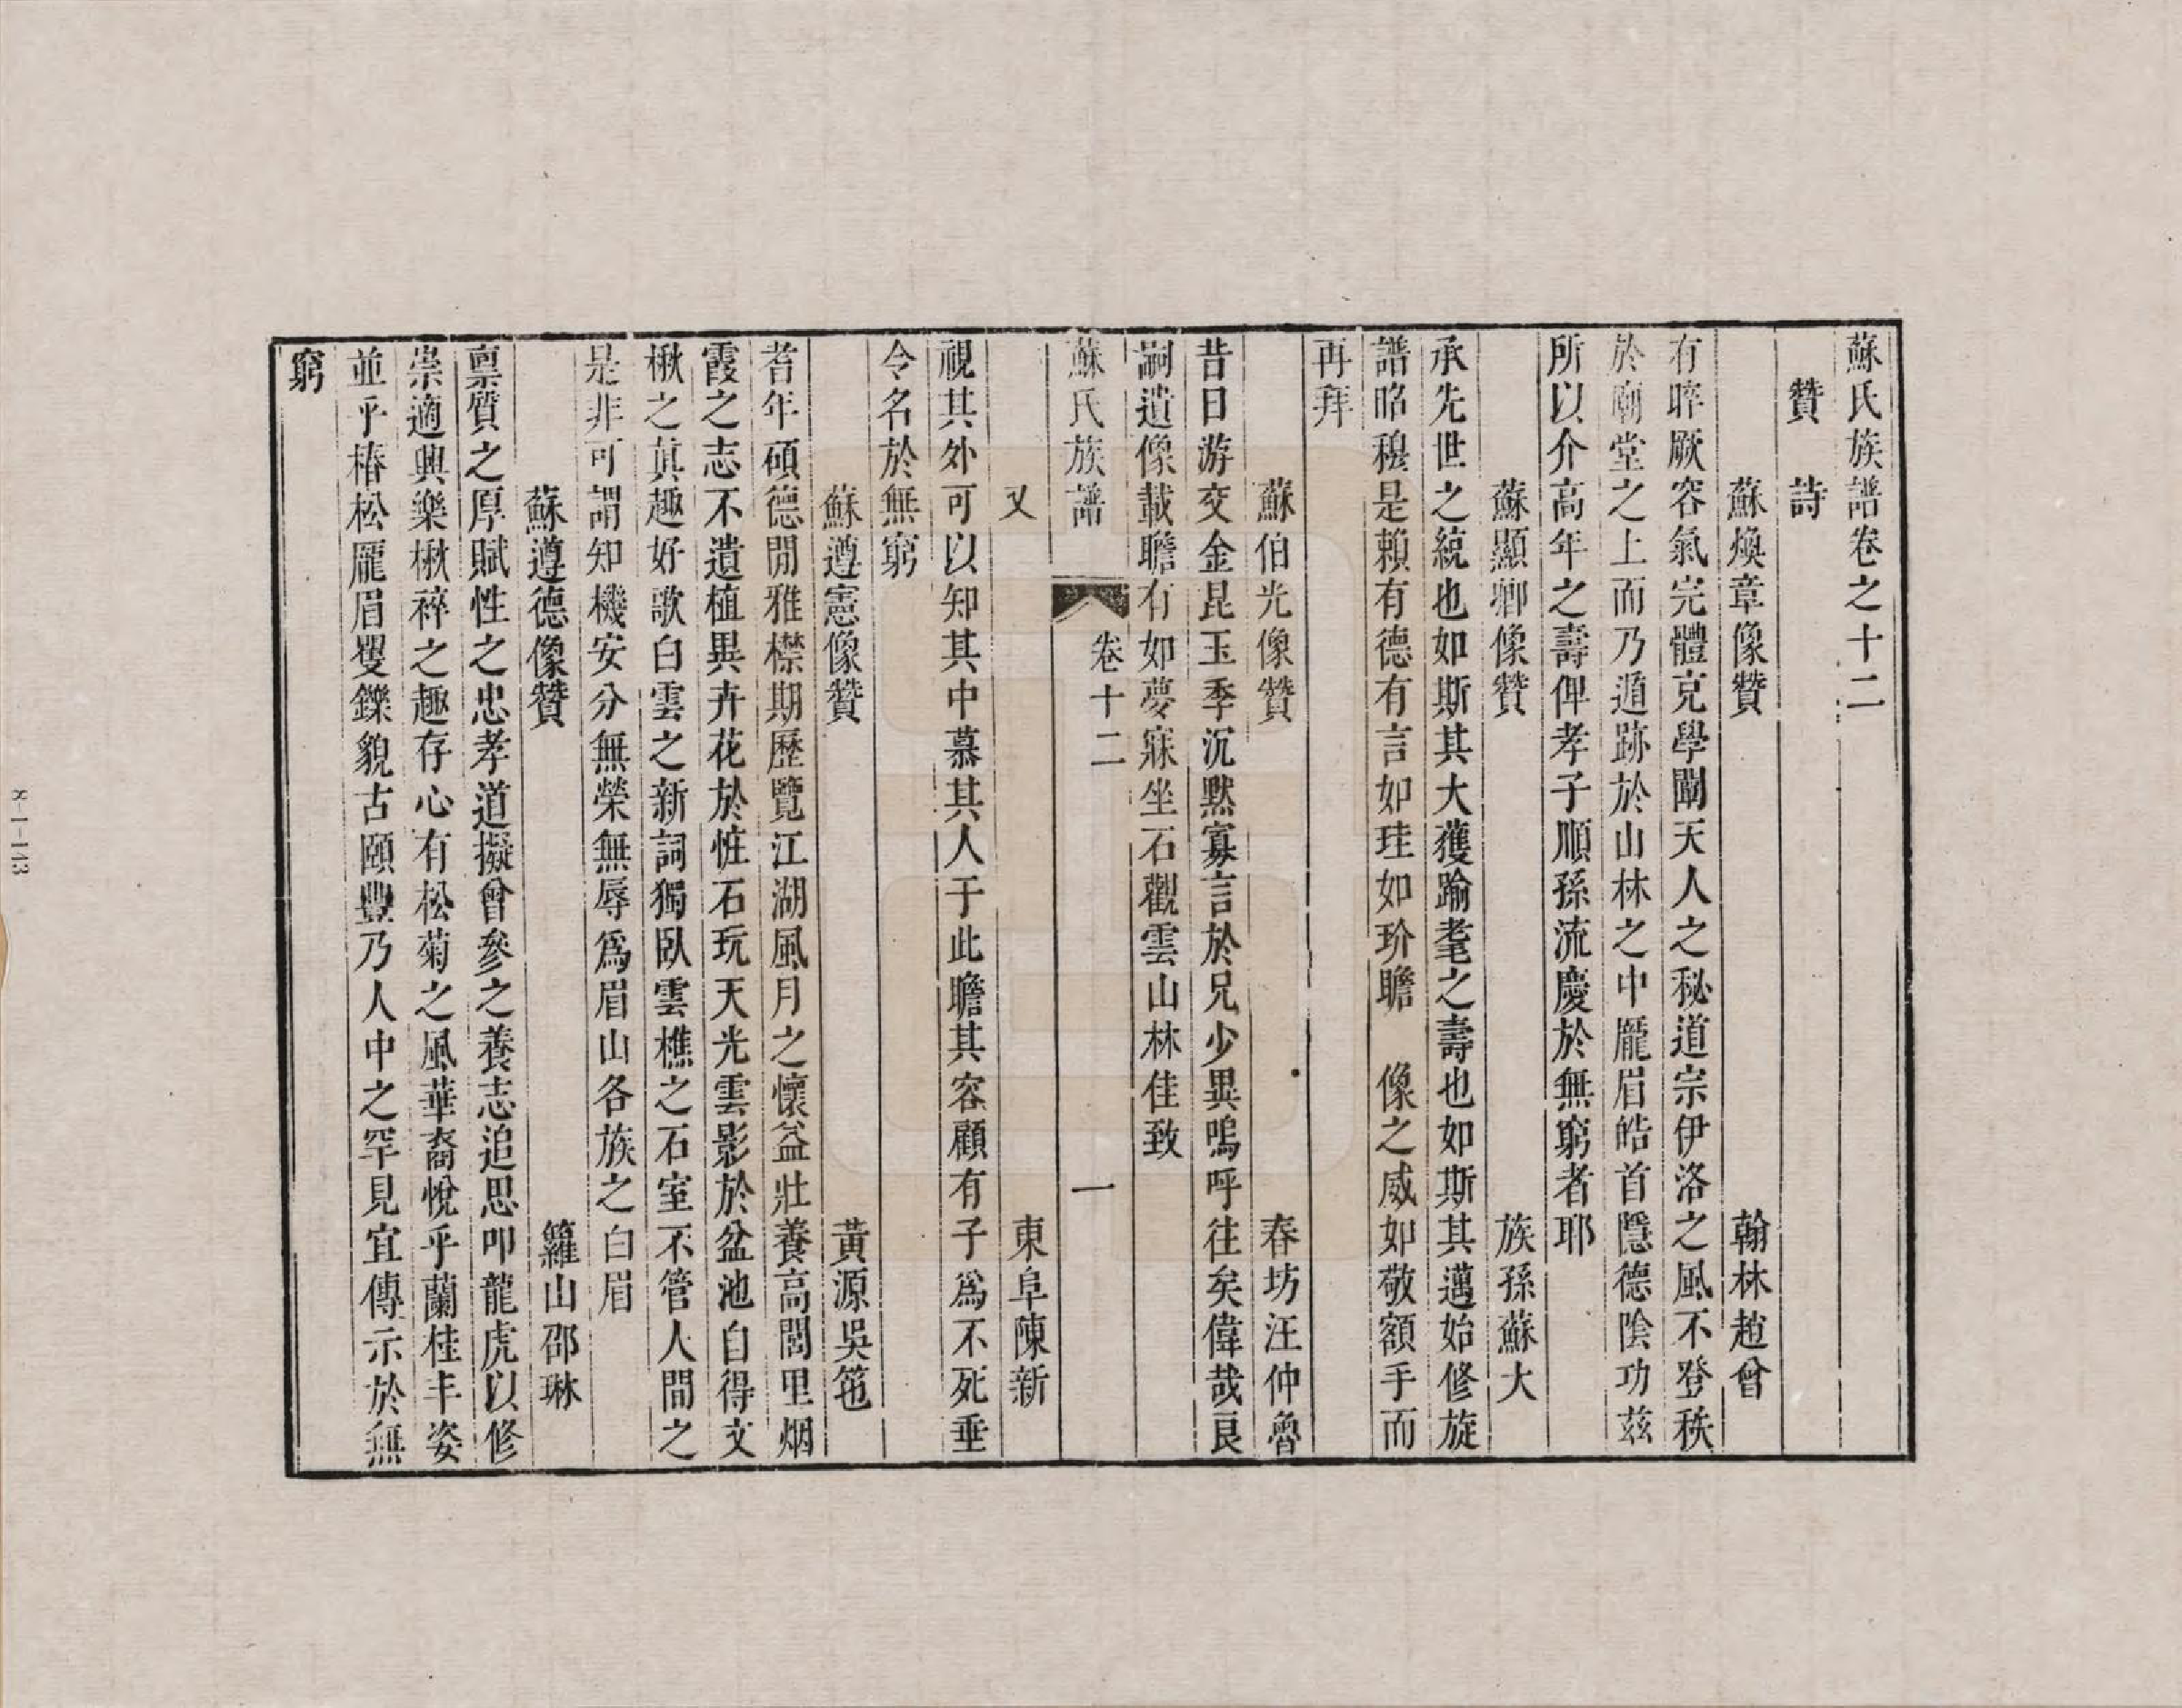 蘇氏族譜卷之十二
贊 詩
蘇煥章像贊 翰林趙曾
有睟厥容氣完體克學闡天人之秘道宗伊洛之風不登秩
於廟堂之上而乃遁跡於山林之中龐眉皓首隱德陰功兹
所以介高年之壽俾孝子順孫流慶於無窮者耶
蘇顯卿像贊 族孫蘇大
承先世之統也如斯其大獲踰耄之壽也如斯其邁始修旋
譜昭穆是賴有德有言如珪如玠瞻 像之威如敬額手而
再拜
蘇伯光像贊 春坊汪仲魯
昔日游交金昆玉季沉默寡言於兄少異嗚呼往矣偉哉良
嗣遺像載瞻有如夢寐坐石觀雲山林佳致
蘇氏族譜 卷十二 一
又 東阜陳新
視其外可以知其中慕其人于此瞻其容顧有子爲不死垂
令名於無窮
蘇遵憲像贊 黃源吳
耆年碩德閒雅襟期歷覽江湖風月之懷益壯養高閭里烟
霞之志不遺植異卉花於恠石玩天光雲影於盆池自得文
楸之真趣好歌白雲之新詞獨臥雲樵之石室不管人間之
是非可謂知機安分無榮無辱爲眉山各族之白眉
蘇遵德像贊 籮山邵琳
稟質之厚賦性之忠孝道擬曾參之養志追思叩龍虎以修
崇適興樂楸稡之趣存心有松菊之風華裔悅乎蘭桂丰姿
並乎椿松龐眉矍鑠貌古頤豐乃人中之罕見宜傳示於無
窮
8-1-143